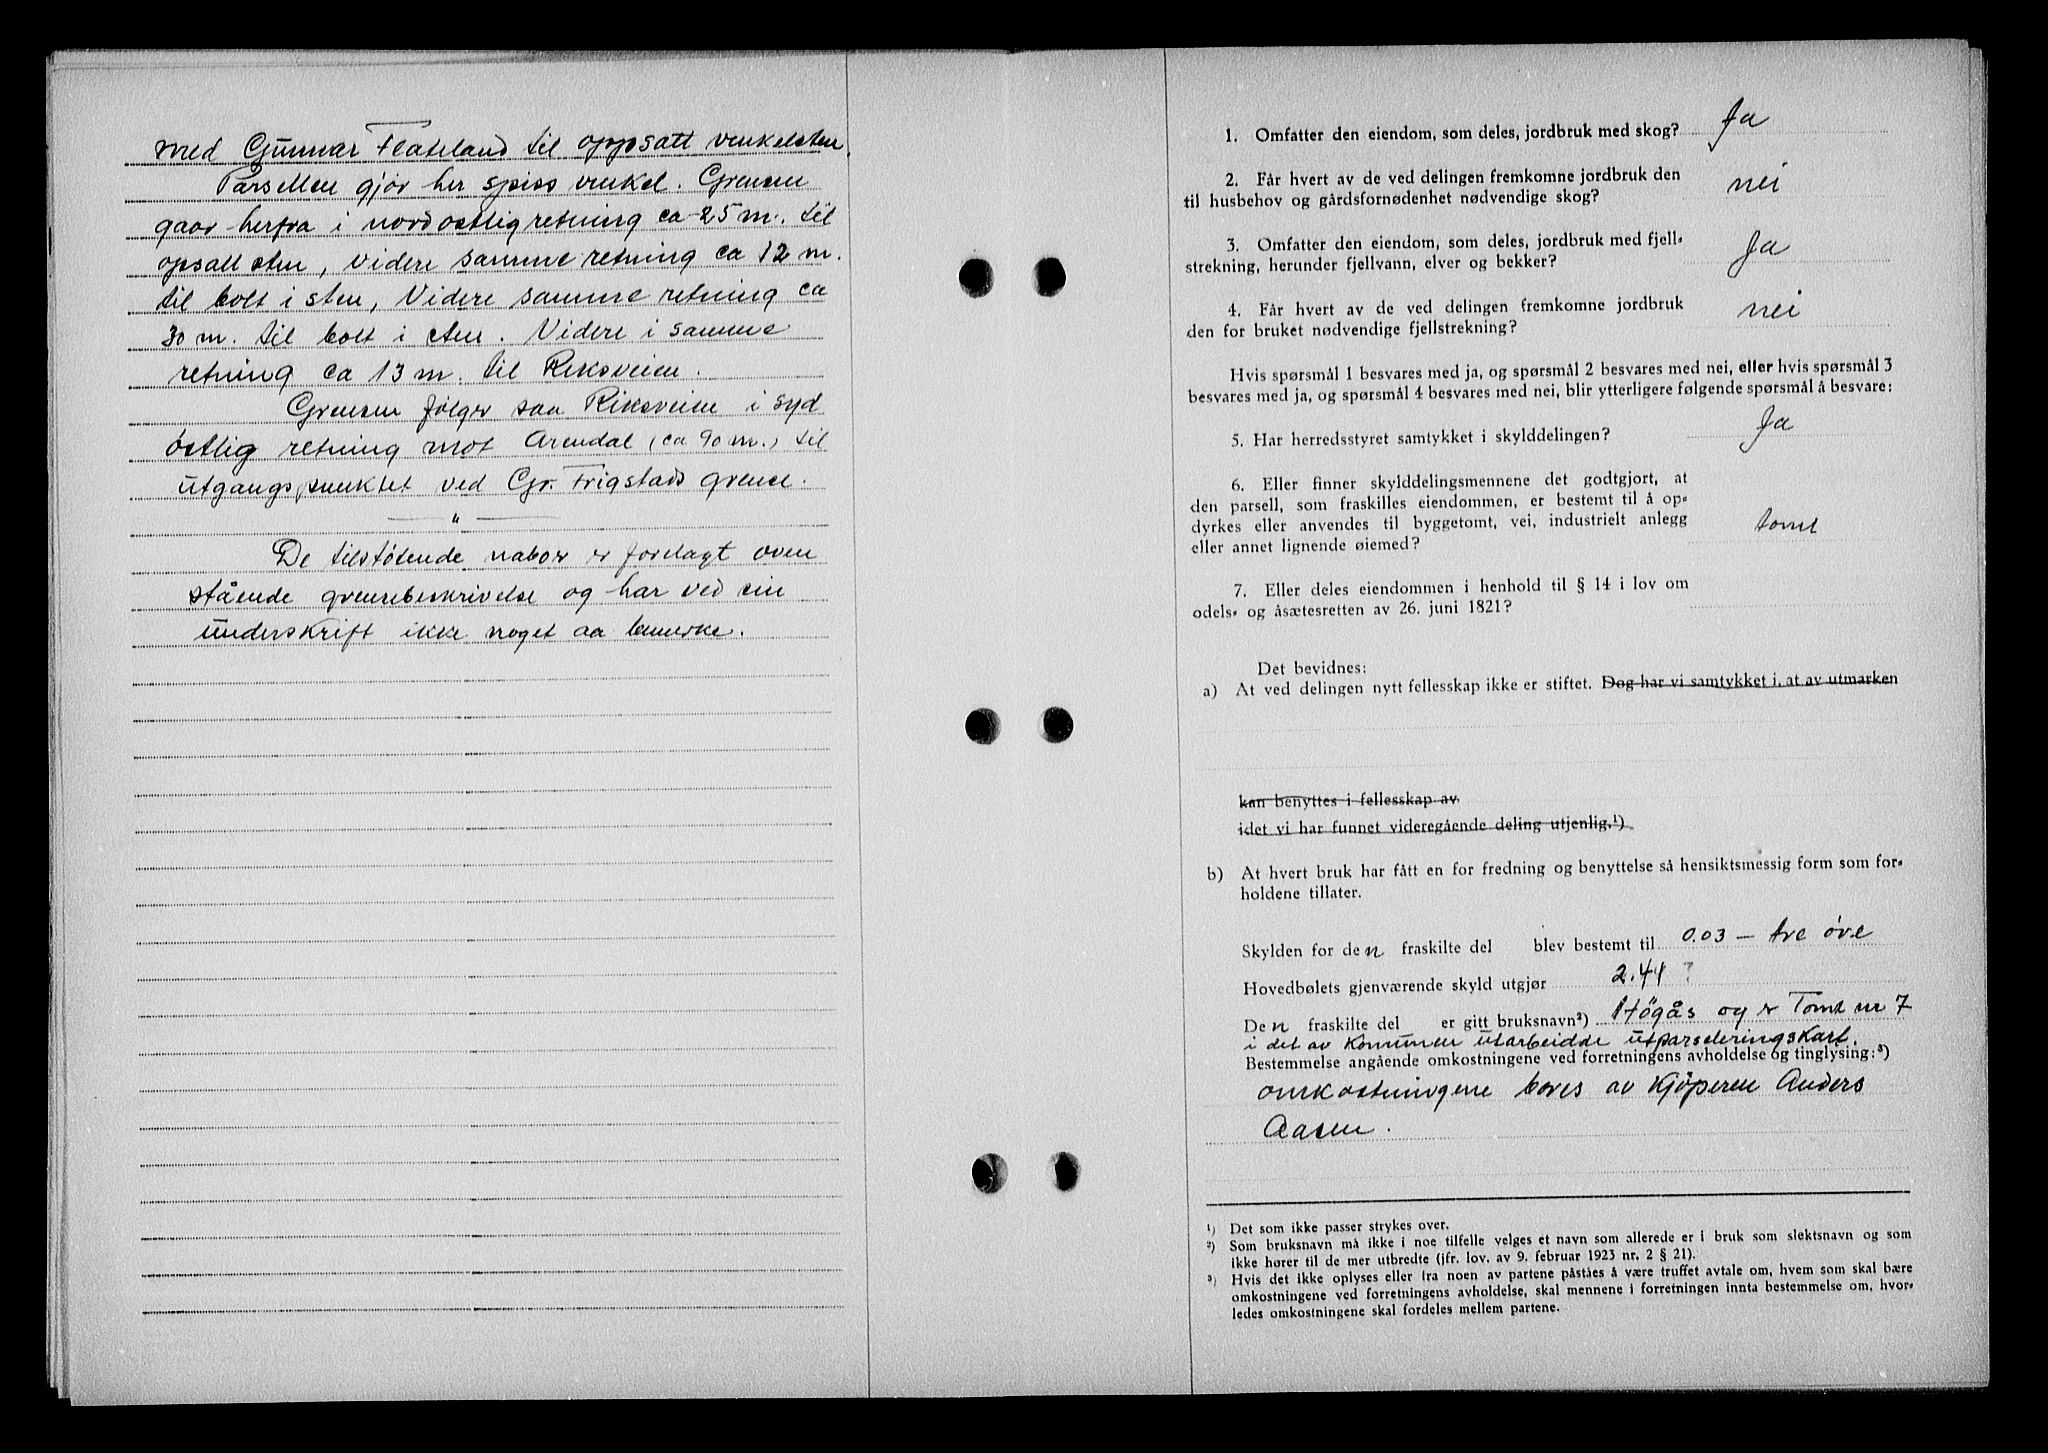 med Gunnar Flateland til oppsatt vinkelsten.
Parsellen gjör her spiss vinkel. Grensen
gaar herfra i nordostlig retning ca 25 m. til
opsatt sten, videre samme retning ca 12 m.
til bolt i sten, Videre samme retning ca
30 m. til bolt i sten. Videre i samme
retning ca 13 m. til Riksveien.
Grensen følger saa Riksveien i syd
östlig retning mot Arendal (ca 90 m.) til
utgangspunktet ved Gr. Frigstads grense.
— " —
De tilstøtende naboer er forelagt oven
stående grensebeskrivelse og har ved sin
underskrift ikke noget aa bemerke.
1. Omfatter den eiendom, som deles, jordbruk med skog? Ja
2. Får hvert av de ved delingen fremkomne jordbruk den
til husbehov og gårdsfornødenhet nødvendige skog? nei
3. Omfatter den eiendom, som deles, jordbruk med fjell-
strekning, herunder fjellvann, elver og bekker? Ja
4. Får hvert av de ved delingen fremkomne jordbruk
den for bruket nødvendige fjellstrekning? nei
Hvis spørsmål 1 besvares med ja, og spørsmål 2 besvares med nei, eller hvis spørsmål 3
besvares med ja, og spørsmål 4 besvares med nei, blir ytterligere følgende spørsmål å besvare:
5. Har herredsstyret samtykket i skylddelingen? Ja
6. Eller finner skylddelingsmennene det godtgjort, at
den parsell, som fraskilles eiendommen, er bestemt til å op-
dyrkes eller anvendes til byggetomt, vei, industrielt anlegg
eller annet lignende øiemed? tomt
7. Eller deles eiendommen i henhold til § 14 i lov om
odels- og åsætesretten av 26. juni 1821?
Det bevidnes:
a) At ved delingen nytt fellesskap ikke er stiftet. Dog har vi samtykket i, at av utmarken
kan benyttes i fellesskap av
idet vi har funnet videregående deling utjenlig.¹)
b) At hvert bruk har fått en for fredning og benyttelse så hensiktsmessig form som for-
holdene tillater.
Skylden for den fraskilte del blev bestemt til 0.03 – tre öre
Hovedbølets gjenværende skyld utgjør 2.41 ?
Den fraskilte del er gitt bruksnavn²) Högås og er Tomt nr 7
i det av kommunen utarbeidde utparseleringskart.
Bestemmelse angående omkostningene ved forretningens avholdelse og tinglysing:³)
omkostningene bæres av kjöperen Anders
Aasen.
¹) Det som ikke passer strykes over.
²) Som bruksnavn må ikke i noe tilfelle velges et navn som allerede er i bruk som slektsnavn og som
ikke hører til de mer utbredte (jfr. lov. av 9. februar 1923 nr. 2 § 21).
³) Hvis det ikke oplyses eller fra noen av partene påståes å være truffet avtale om, hvem som skal bære
omkostningene ved forretningens avholdelse, skal mennene i forretningen innta bestemmelse om, hvor-
ledes omkostningene skal fordeles mellem partene.